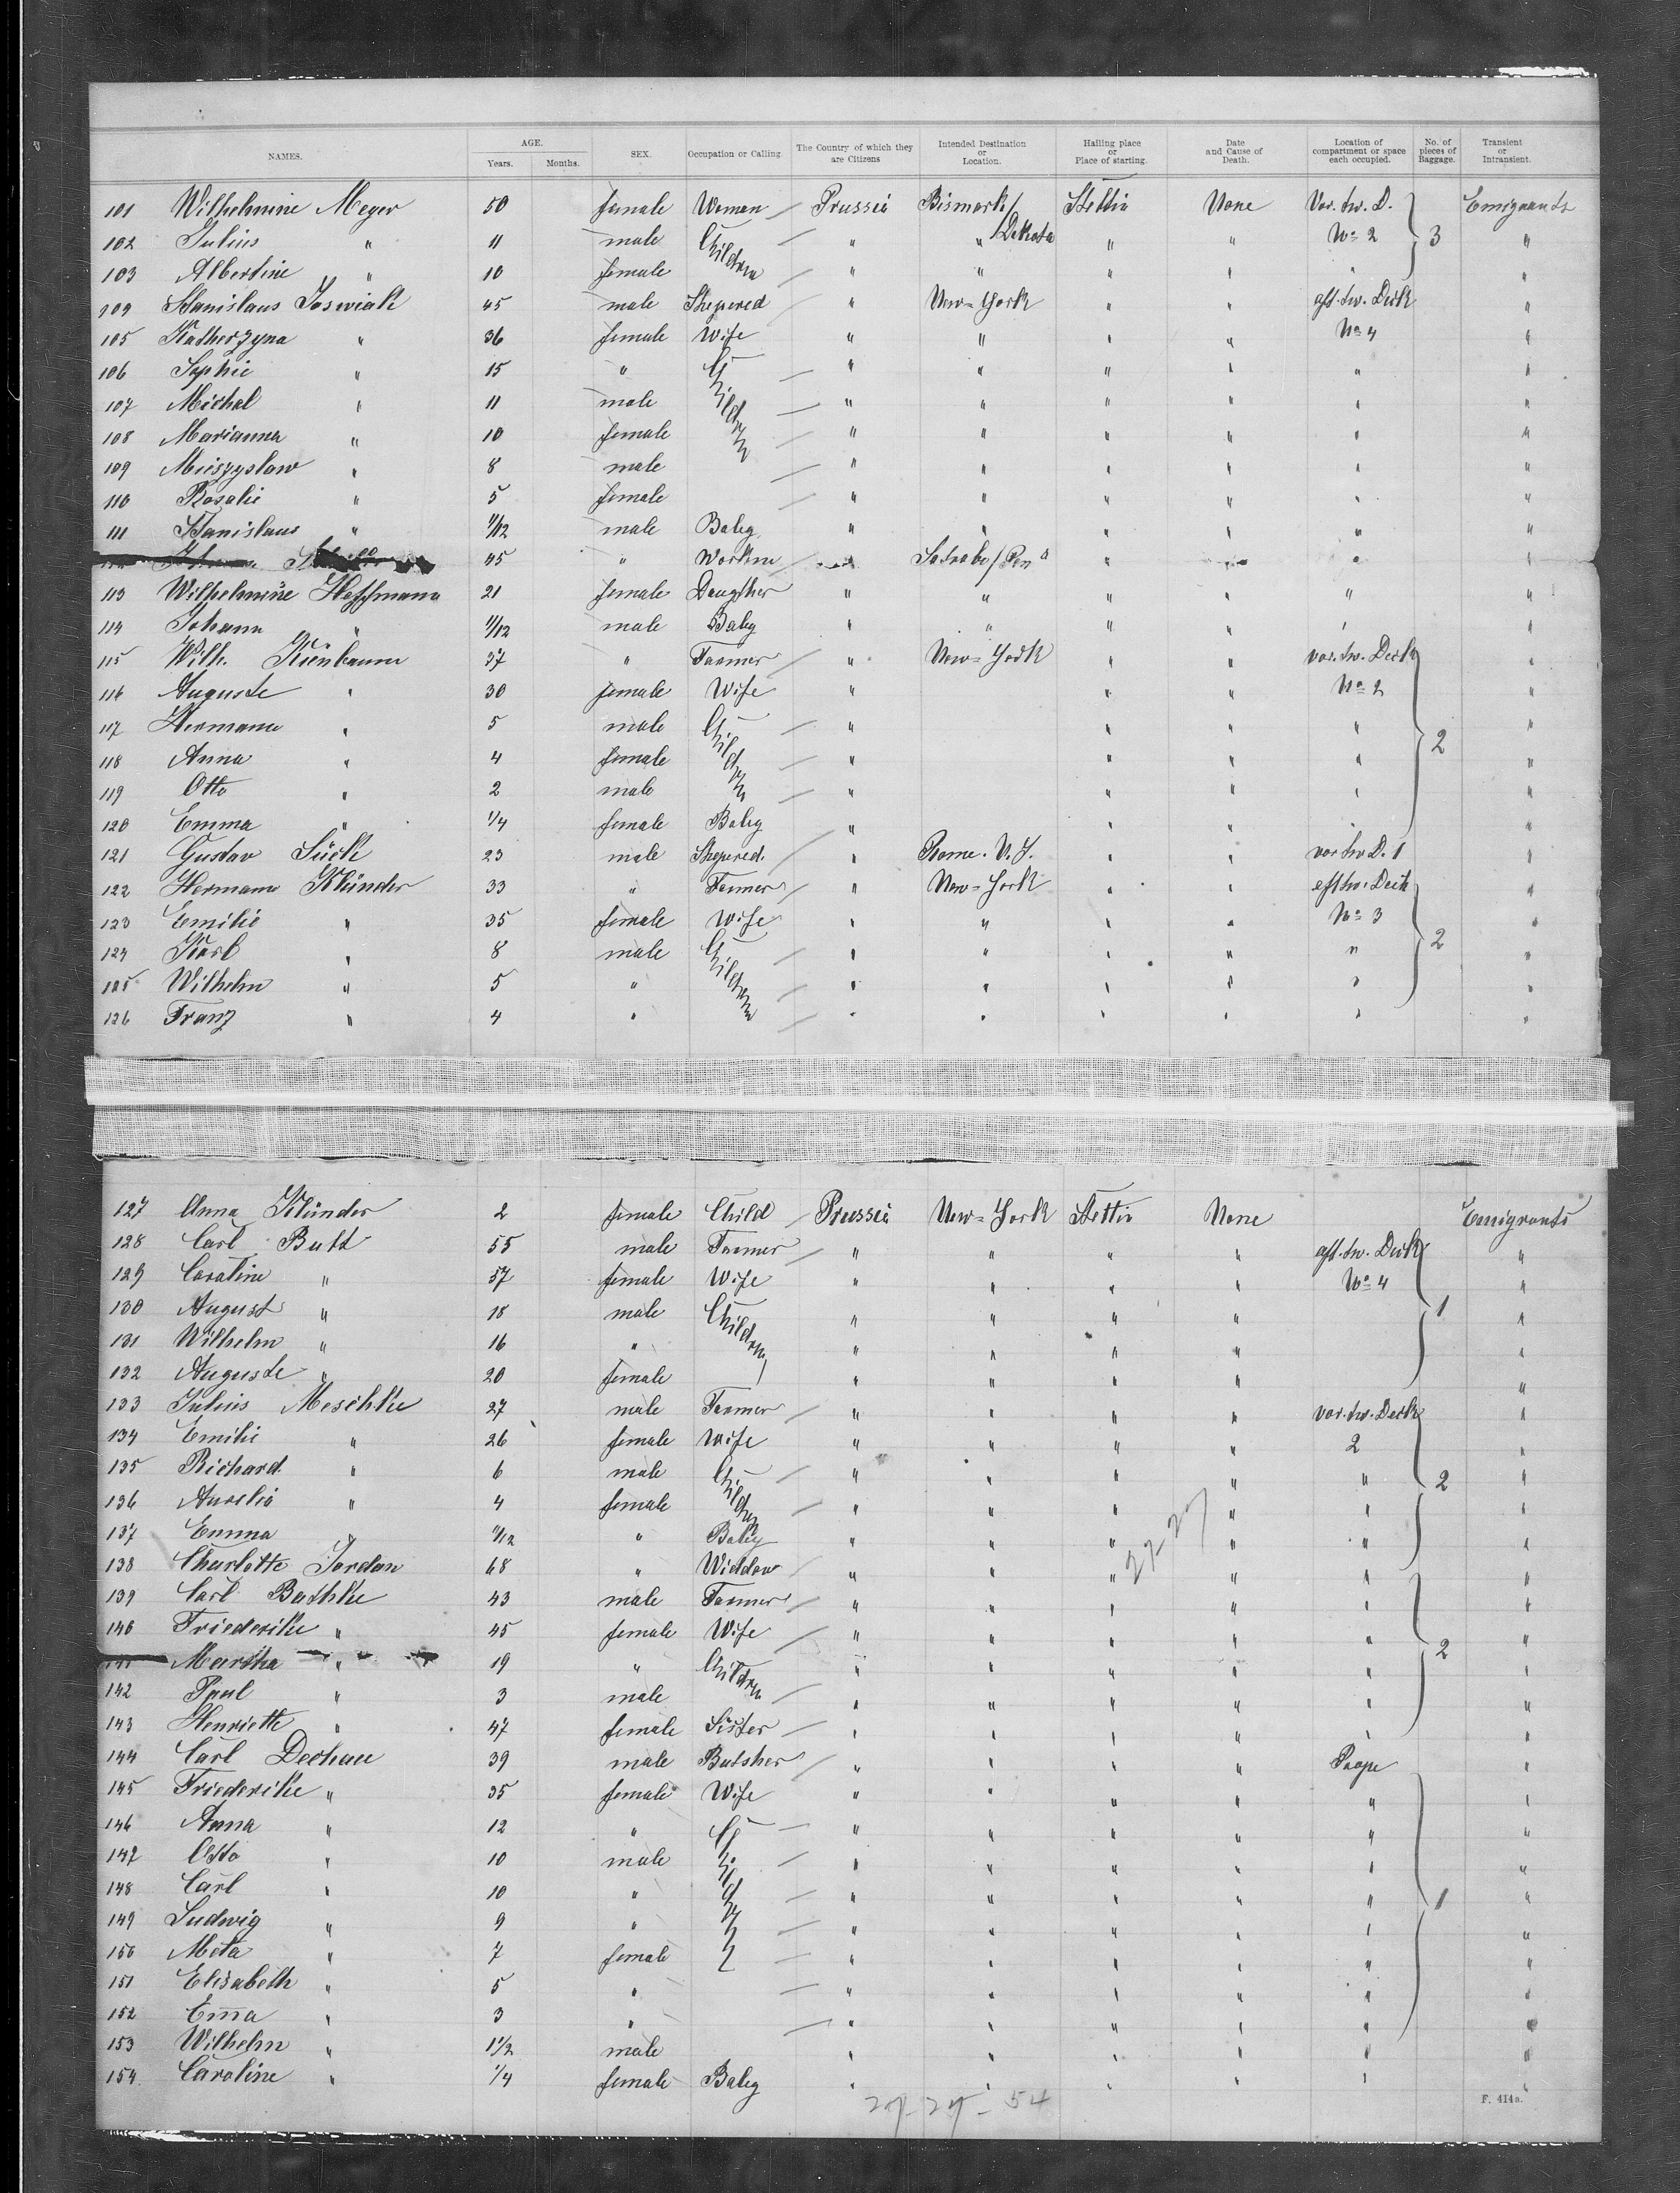 NAMES. AGE. Years. Months. SEX. Occupation or Calling. The Country of which they are Citizens Intended Destination or Location. Hailing place or Place of starting. Date and Cause of Death. Location of compartment or space each occupied. No. of pieces of Baggage. Transient or Intransient.
101 Wilhelmine Meyer 50 female Woman Prussia Bismark/ Stettin None Vor. tw. D. Emigrants
102 Julius " 11 male Children " " Dekota " " No 2 3 "
103 Albertine " 10 female " " " " " "
104 Stanislaus Joswiak 45 male Shepered " New=York " " aft. tw. Deck "
105 Katherzyna " 36 female Wife " " " " No 4 "
106 Sophie " 15 " Children " " " " " "
107 Michal " 11 male " " " " " "
108 Marianna " 10 female " " " " " "
109 Mieszyslaw " 8 male " " " " " "
110 Rosalie " 5 female " " " " " "
111 Stanislaus " 11/12 male Baby " " " " " "
45 " Workm " " " "
113 Wilhelmine Hoffmann 21 female Daugther " " " " " "
114 Johann " 11/12 male Baby " " " " " "
115 Wilh. Kienbaum 37 " Farmer " New=York " " vor. tw. Deck "
116 Auguste " 30 female Wife " " " No 2 "
117 Hermann " 5 male Children " " " " 2 "
118 Anna " 4 female " " " " "
119 Otto " 2 male " " " " "
120 Emma " 1/4 female Baby " " " " "
121 Gustav Sück 23 male Shepered. " Rome. N.Y. " " vor tw D. 1 "
122 Hermann Klünder 33 " Farmer " New=York " " aft tw. Deck "
123 Emilie " 35 female Wife " " " " No 3 "
124 Karl " 8 male Children " " " " " 2 "
125 Wilhelm " 5 " " " " " " "
126 Franz " 4 " " " " " " "
127 Anna Klünder 2 female Child Prussia New=York Stettin None Emigrants
128 Carl Butt 55 male Farmer " " " " aft. tw. Deck "
129 Caroline " 57 female Wife " " " " No 4 "
130 August " 18 male Children " " " " 1 "
131 Wilhelm " 16 " " " " " "
132 Auguste " 20 female " " " " "
133 Julius Meschke 27 male Farmer " " " " vor. tw. Deck "
134 Emilie " 26 female Wife " " " " 2 "
135 Richard " 6 male Children " " " " " 2 "
136 Aurelie " 4 female " " " " " "
137 Emma " 11/12 " Baby " " " " " "
138 Charlotte Jordan 68 " Widdow " " " " " "
139 Carl Bathke 43 male Farmer " " " " " "
140 Friederike " 45 female Wife " " " " " 2 "
Martha " 19 " Children " " " " " "
142 Paul " 3 male " " " " " "
143 Henriette " 47 female Sister " " " " " "
144 Carl Dechau 39 male Butsher " " " " "
145 Friederike " 35 female Wife " " " " " "
146 Anna " 12 " Children " " " " " "
147 Otto " 10 male " " " " " "
148 Carl " 10 " " " " " " 1 "
149 Ludwig " 9 " " " " " " "
150 Meta " 7 female " " " " " "
151 Elisabeth " 5 " " " " " " "
152 Emma " 3 " " " " " " "
153 Wilhelm " 1 1/2 male " " " " " "
154 Caroline " 1/4 female Baby " " " " " "
27-27-54
F. 414a.